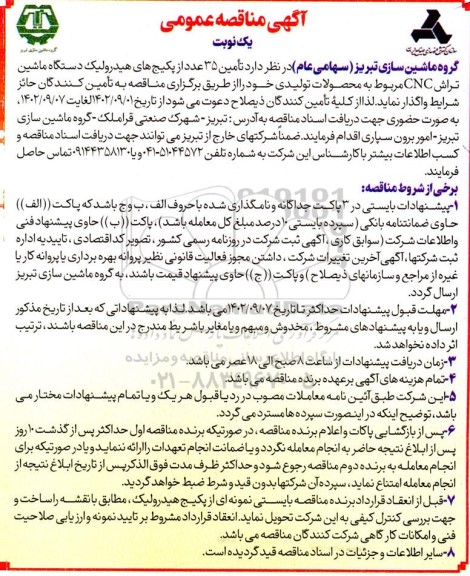 آگهی مناقصه عمومی
یک نوبت
گروه ماشین سازی تبریز
گروه ماشین سازی تبریز (سهامی عام) در نظر دارد تأمین ۳۵ عدد از پکیج های هیدرولیک دستگاه ماشین
تراش CNC مربوط به محصولات تولیدی خود را از طریق برگزاری مناقصه به تأمین کنندگان حائز
شرایط واگذار نماید. لذا از کلیۀ تأمین کنندگان ذیصلاح دعوت می شود از تاریخ ۱۴۰۲/۰۹/۰۱ لغایت ۱۴۰۲/۰۹/۰۷،
به صورت حضوری جهت دریافت اسناد مناقصه به آدرس : تبریز - شهرک صنعتی قراملک - گروه ماشین سازی
تبریز - امور برون سپاری اقدام فرمایند. ضمناً شرکتهای خارج از تبریز می توانند جهت دریافت اسناد مناقصه و
کسب اطلاعات بیشتر با کارشناس این شرکت به شماره تلفن ۰۴۱-۵۱۰۴۴۵۷۲ و یا ۰۹۱۴۴۳۵۸۱۳۰ تماس حاصل
فرمایند.
برخی از شروط مناقصه:
۱- پیشنهادات بایستی در ۳ پاکت جداگانه و نامگذاری شده با حروف الف ، ب و ج باشد که پاکت ((الف))
حاوی ضمانتنامه بانکی ( سپرده بایستی ۱۰ درصد مبلغ کل معامله باشد ) ، پاکت ((ب)) حاوی پیشنهاد فنی
واطلاعات شرکت (سوابق کاری ، آگهی ثبت شرکت در روزنامه رسمی کشور ، تصویر کد اقتصادی ، تاییدیه اداره
ثبت شرکتها، آگهی آخرین تغییرات شرکت ، داشتن مجوز فعالیت قانونی نظیر پروانه بهره برداری یا پروانه کار یا
غیره از مراجع و سازمانهای ذیصلاح ) و پاکت ((ج)) حاوی پیشنهاد قیمت باشند، به گروه ماشین سازی تبریز
ارسال گردد.
۲- مهلت قبول پیشنهادات حداکثر تا تاریخ ۱۴۰۲/۰۹/۰۷ می باشد. لذا به پیشنهاداتی که بعد از تاریخ مذکور
ارسال و یا به پیشنهادهای مشروط ، مخدوش و مبهم و یا مغایر با شرایط مندرج در این مناقصه باشند، ترتیب
اثر داده نخواهد شد.
۳- زمان دریافت پیشنهادات از ساعت ۸ صبح الی ۱۷ عصر می باشد.
۴- تمام هزینه های آگهی بر عهده برنده مناقصه می باشد.
۵- این شرکت طبق آئین نامه معاملات مصوب در رد یا قبول هر یک و یا تمام پیشنهادات مختار می
باشد، توضیح اینکه در اینصورت سپرده ها مسترد می گردد.
۶- پس از بازگشایی پاکات و اعلام برنده مناقصه ، در صورتیکه برنده مناقصه اول حداکثر پس از گذشت ۱۰ روز
پس از ابلاغ نتیجه حاضر به انجام معامله نگردد و یا ضمانت انجام تعهدات را ارائه ننماید و یا در صورتیکه برای
انجام معامله به برنده دوم مناقصه رجوع شود و حداکثر ظرف مدت فوق الذکر پس از تاریخ ابلاغ نتیجه از
انجام معامله امتناع نماید ، سپرده آن شرکتها بدون قید و شرط ضبط خواهد گردید.
۷- قبل از انعقاد قرارداد برنده مناقصه بایستی نمونه ای از پکیج هیدرولیک ، مطابق با نقشه را ساخت و
جهت بررسی کنترل کیفی به این شرکت تحویل نماید. انعقاد قرارداد مشروط بر تایید نمونه و ارزیابی صلاحیت
فنی و امکانات کارگاهی شرکت کنندگان مناقصه می باشد.
۸- سایر اطلاعات و جزئیات در اسناد مناقصه قید گردیده است.